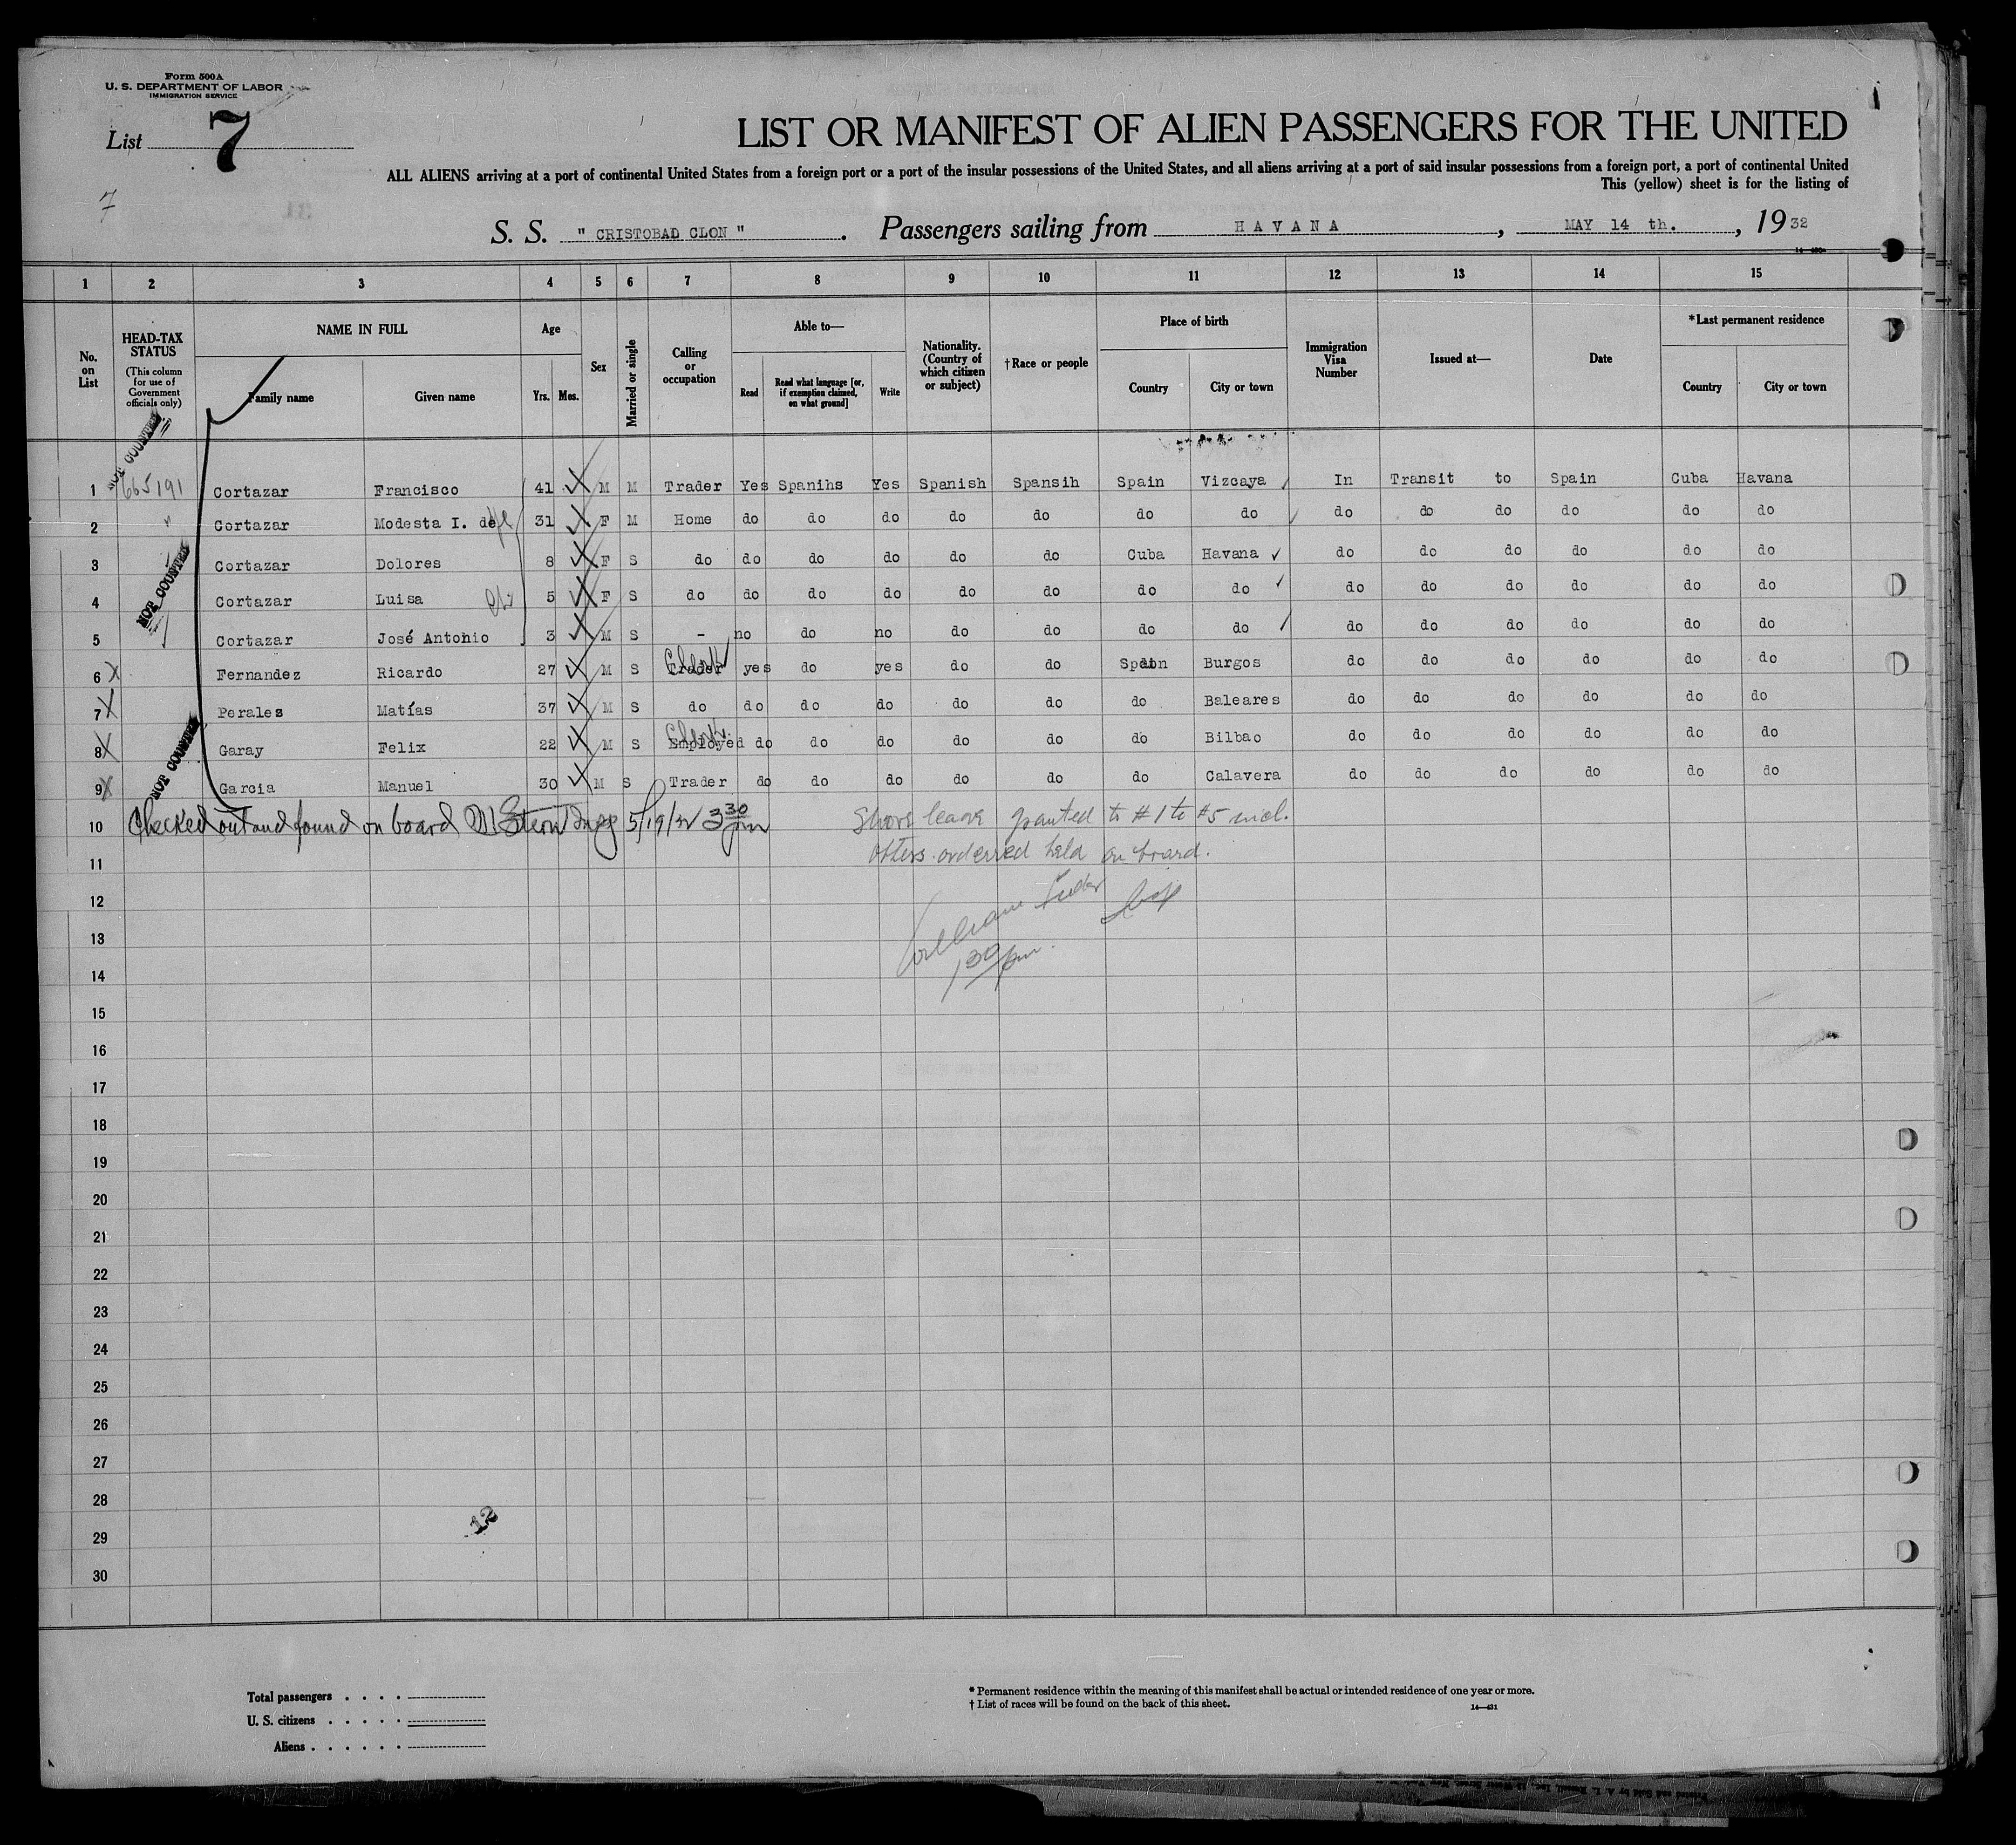 Form 500A
U. S. DEPARTMENT OF LABOR
IMMIGRATION SERVICE
List 7
7
LIST OR MANIFEST OF ALIEN PASSENGERS FOR THE UNITED
ALL ALIENS arriving at a port of continental United States from a foreign port or a port of the insular possessions of the United States, and all aliens arriving at a port of said insular possessions from a foreign port, a port of continental United
This (yellow) sheet is for the listing of
S. S. " CRISTOBAD CLON " . Passengers sailing from HAVANA , MAY 14 th. , 1932
1 2 3 4 5 6 7 8 9 10 11 12 13 14 15
No. on List
HEAD-TAX STATUS (This column for use of Government officials only)
NAME IN FULL Family name Given name
Age Yrs. Mos.
Sex
Married or single
Calling or occupation
Able to— Read Read what language [or, if exemption claimed, on what ground] Write
Nationality. (Country of which citizen or subject)
† Race or people
Place of birth Country City or town
Immigration Visa Number
Issued at—
Date
*Last permanent residence Country City or town
NOT COUNTED
1 665191 Cortazar Francisco 41 M M Trader Yes Spanihs Yes Spanish Spansih Spain Vizcaya In Transit to Spain Cuba Havana
2 " Cortazar Modesta I. de 31 F M Home do do do do do do do do do do do do do
3 Cortazar Dolores 8 F S do do do do do do Cuba Havana do do do do do do
NOT COUNTED
4 Cortazar Luisa 5 F S do do do do do do do do do do do do do do
5 Cortazar José Antonio 3 M S - no do no do do do do do do do do do do
6 X Fernandez Ricardo 27 M S Trader Clerk yes do yes do do Spain Burgos do do do do do do
7 X Perales Matías 37 M S do do do do do do do Baleares do do do do do do
8 X Garay Felix 22 M S Employed Clerk do do do do do do Bilbao do do do do do do
NOT COUNTED
9 X Garcia Manuel 30 M S Trader do do do do do do Calavera do do do do do do
10 Checked out and found on board Stern Insp 5/19/32 3 30 pm Shore leave granted to #1 to #5 incl.
11 Others ordered held on board.
12 William Insp
13 1 30 pm.
14
15
16
17
18
19
20
21
22
23
24
25
26
27
28
29
30
Total passengers . . . .
U. S. citizens . . . . .
Aliens . . . . . .
* Permanent residence within the meaning of this manifest shall be actual or intended residence of one year or more.
† List of races will be found on the back of this sheet.
14—431